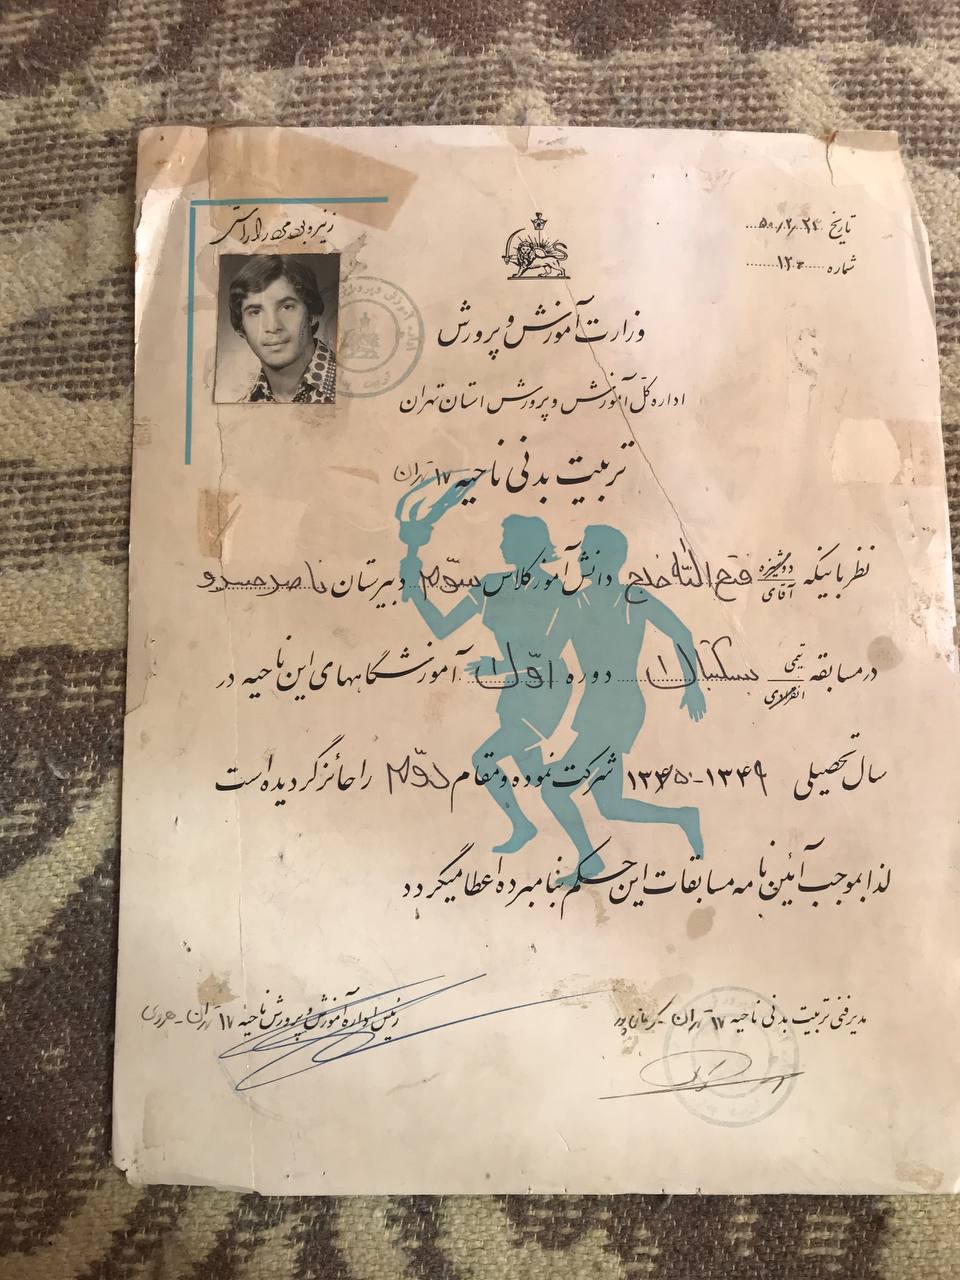 تاریخ ۵۰/۲/۲۳
شماره ۱۲۰
ز نیرو بود مرد را راستی
وزارت آموزش و پرورش
اداره کل آموزش و پرورش استان تهران
تربیت بدنی ناحیه ۱۷ تهران
نظر باینکه دوشیزه آقای فتح الله خلج دانش آموز کلاس سوّم دبیرستان ناصر خسرو
در مسابقه تیمی انفرادی بسکتبال دوره اوّل آموزشگاههای این ناحیه در
سال تحصیلی ۱۳۴۹-۱۳۵۰ شرکت نموده و مقام دوّم را حائز گردیده است
لذا بموجب آئین نامه مسابقات این حکم بنامبرده اعطا میگردد
مدیر فنی تربیت بدنی ناحیه ۱۷ تهران - کرمانی پور
رئیس اداره آموزش و پرورش ناحیه ۱۷ تهران -